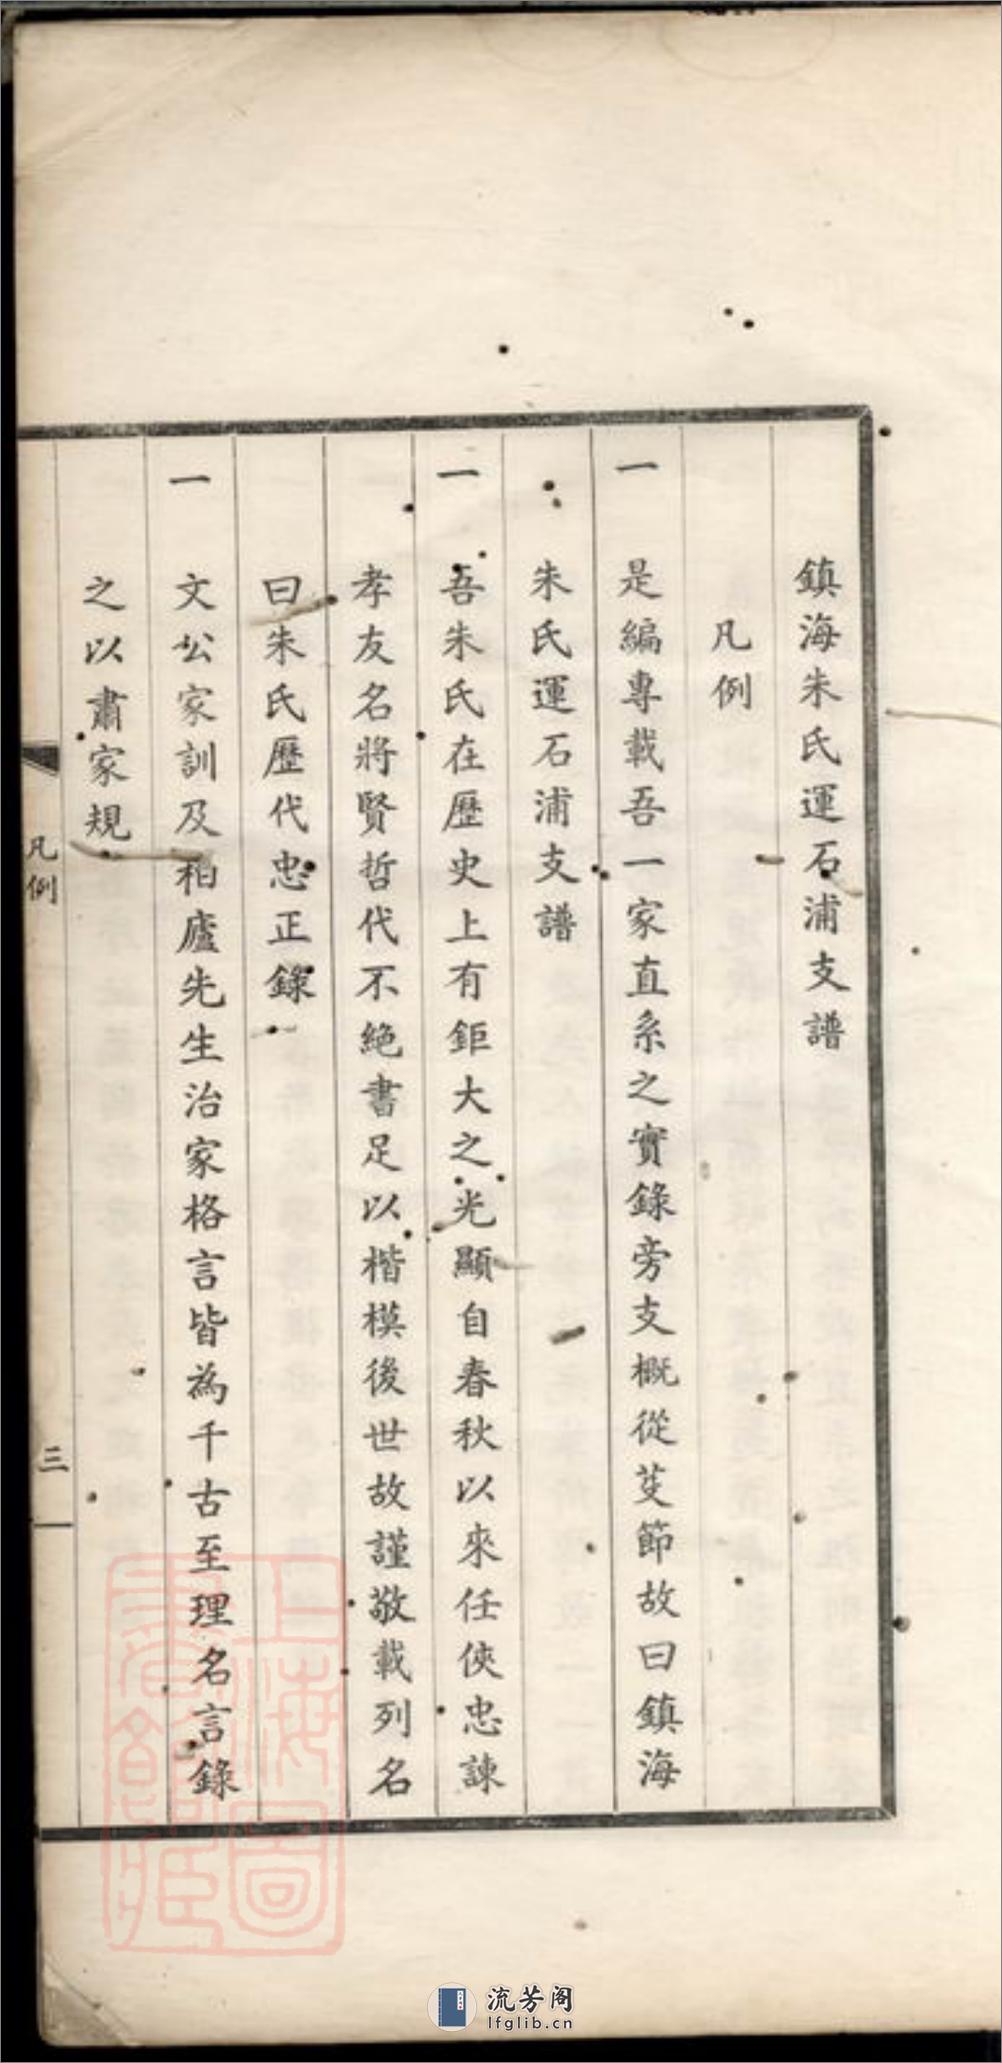 鎮海朱氏運石浦支譜
凡例
一 是編專載吾一家直系之實錄旁支概從芟節故曰鎮海
朱氏運石浦支譜
一 吾朱氏在歷史上有鉅大之光顯自春秋以來任俠忠諫
孝友名將賢哲代不絶書足以楷模後世故謹敬載列名
曰朱氏歷代忠正錄
一 文公家訓及柏廬先生治家格言皆為千古至理名言錄
之以肅家規
凡例
三
上海圖書館藏
流芳阁
lfglib.cn